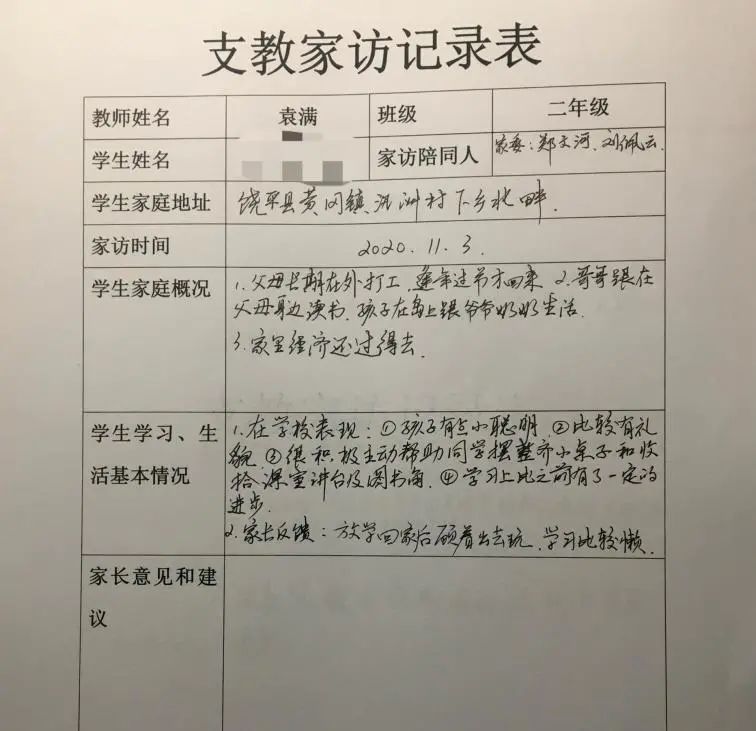 支教家访记录表
教师姓名 袁满 班级 二年级
学生姓名 家访陪同人 家委：郑文河、刘佩云.
学生家庭地址 饶平县黄冈镇、汛洲村下乡北畔.
家访时间 2020.11.3.
学生家庭概况 1.父母长期在外打工,逢年过节才回来 2.哥哥跟在
父母身边读书,孩子在岛上跟爷爷奶奶生活.
3.家里经济还过得去.
学生学习、生 1.在学校表现：①孩子有点小聪明,②比较有礼
活基本情况 貌,③很积极主动帮助同学摆整齐小桌子和收
拾课室讲台及图书角.④学习上比之前有了一定的
进步.
2.家长反馈：放学回家后顾着出去玩,学习比较懒.
家长意见和建
议